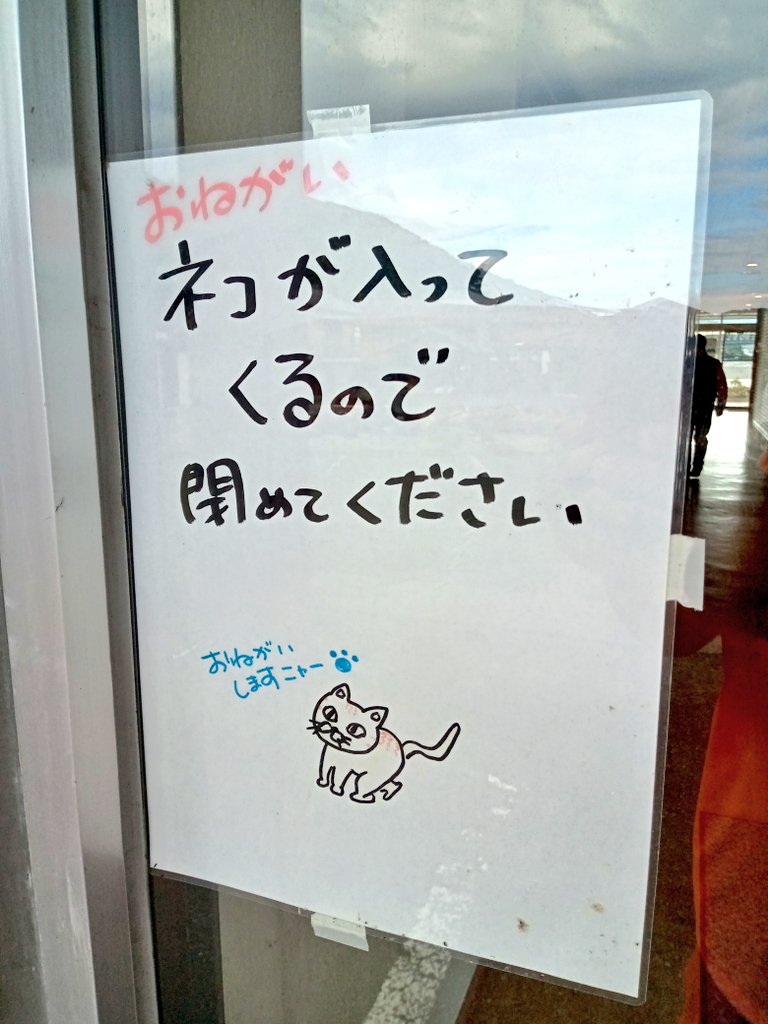 おねがい
ネコが入って
くるので
閉めてください
おねがい
しますニャー